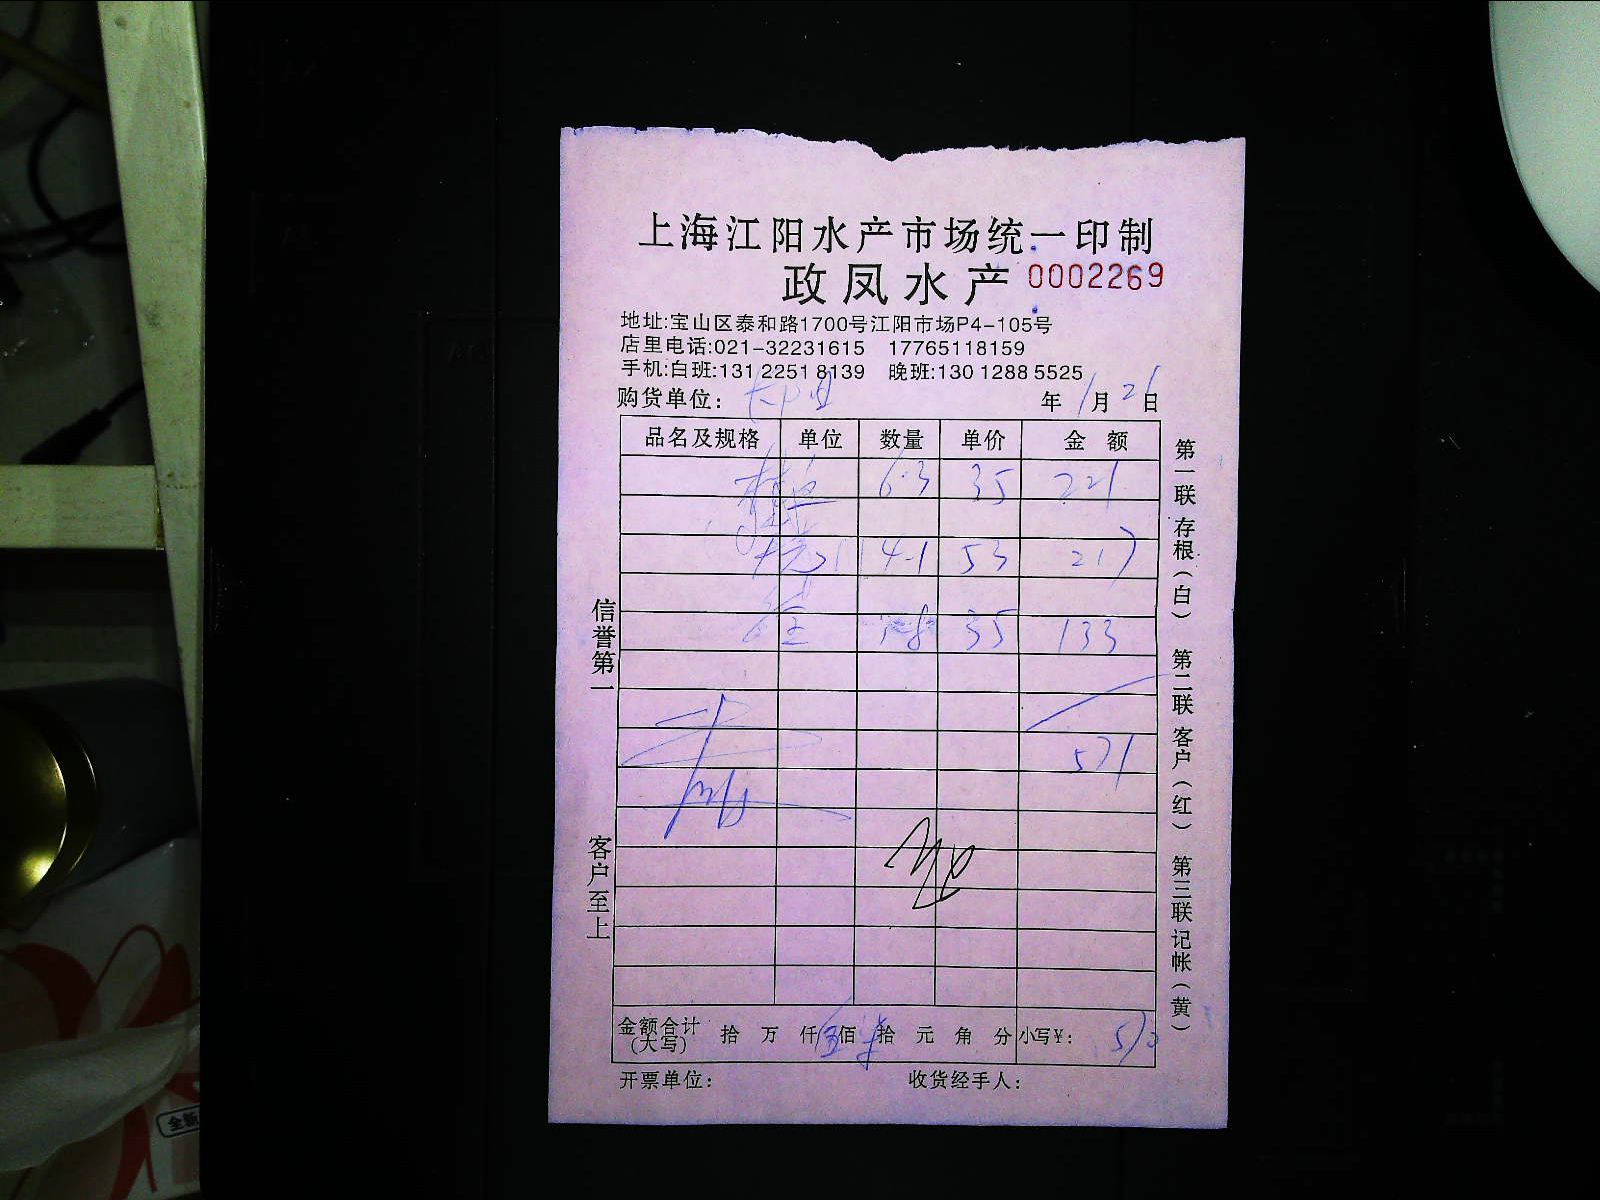 上海江阳水产市场统一印制
政凤水产 0002269
地址:宝山区泰和路1700号江阳市场P4-105号
店里电话:021-32231615 17765118159
手机:白班:131 2251 8139 晚班:130 1288 5525
购货单位: 年 1月 26日
品名及规格 单位 数量 单价 金 额
6.3 35 221
4.1 53 217
35 133
571
金额合计(大写) 拾 万 仟 伍佰 柒拾 元 角 分 小写¥: 570
开票单位: 收货经手人:
信誉第一
客户至上
第一联 存根(白) 第二联 客户(红) 第三联 记帐(黄)
全新